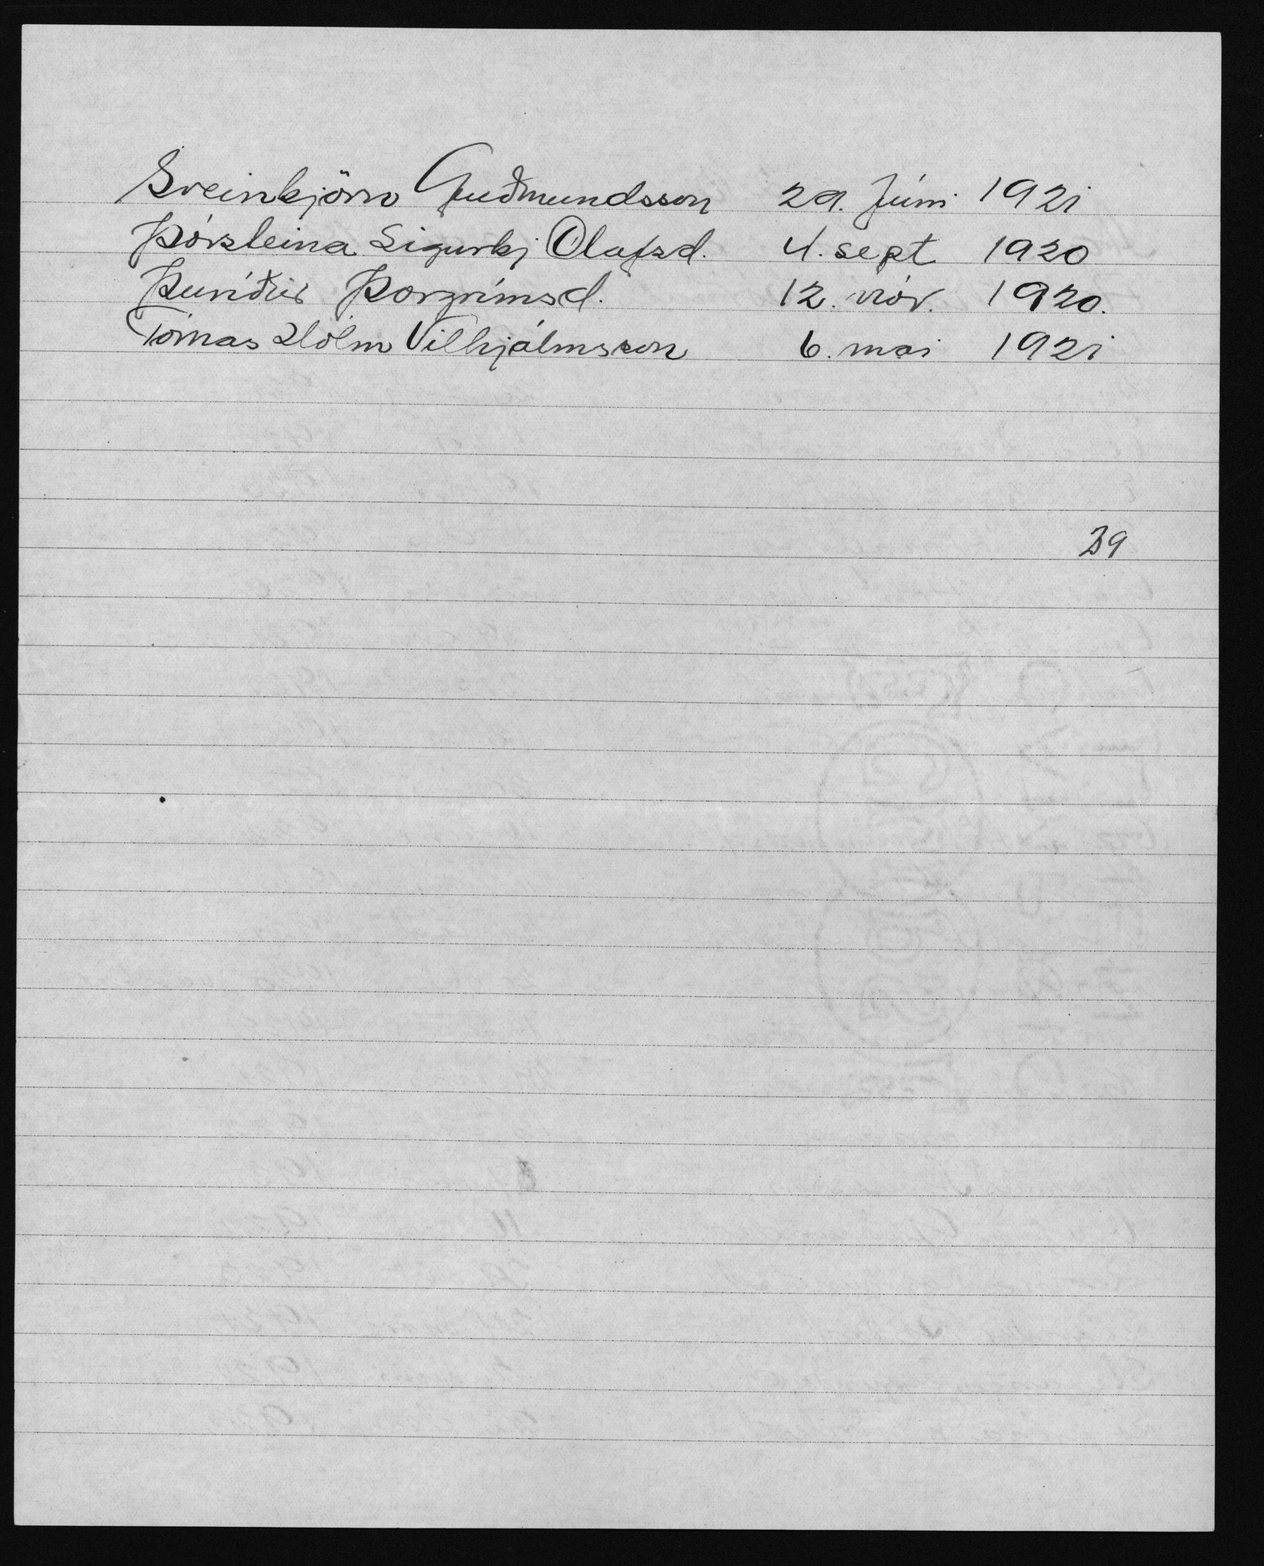 Sveinbjörn Guðmundsson 29. Júni 1921
Þórsteina Sigurbj Olafsd. 4. sept 1920
Þuríður Þorgrímsd. 12. nóv. 1920.
Tómas Hólm Vilhjálmsson 6. mai 1921
39